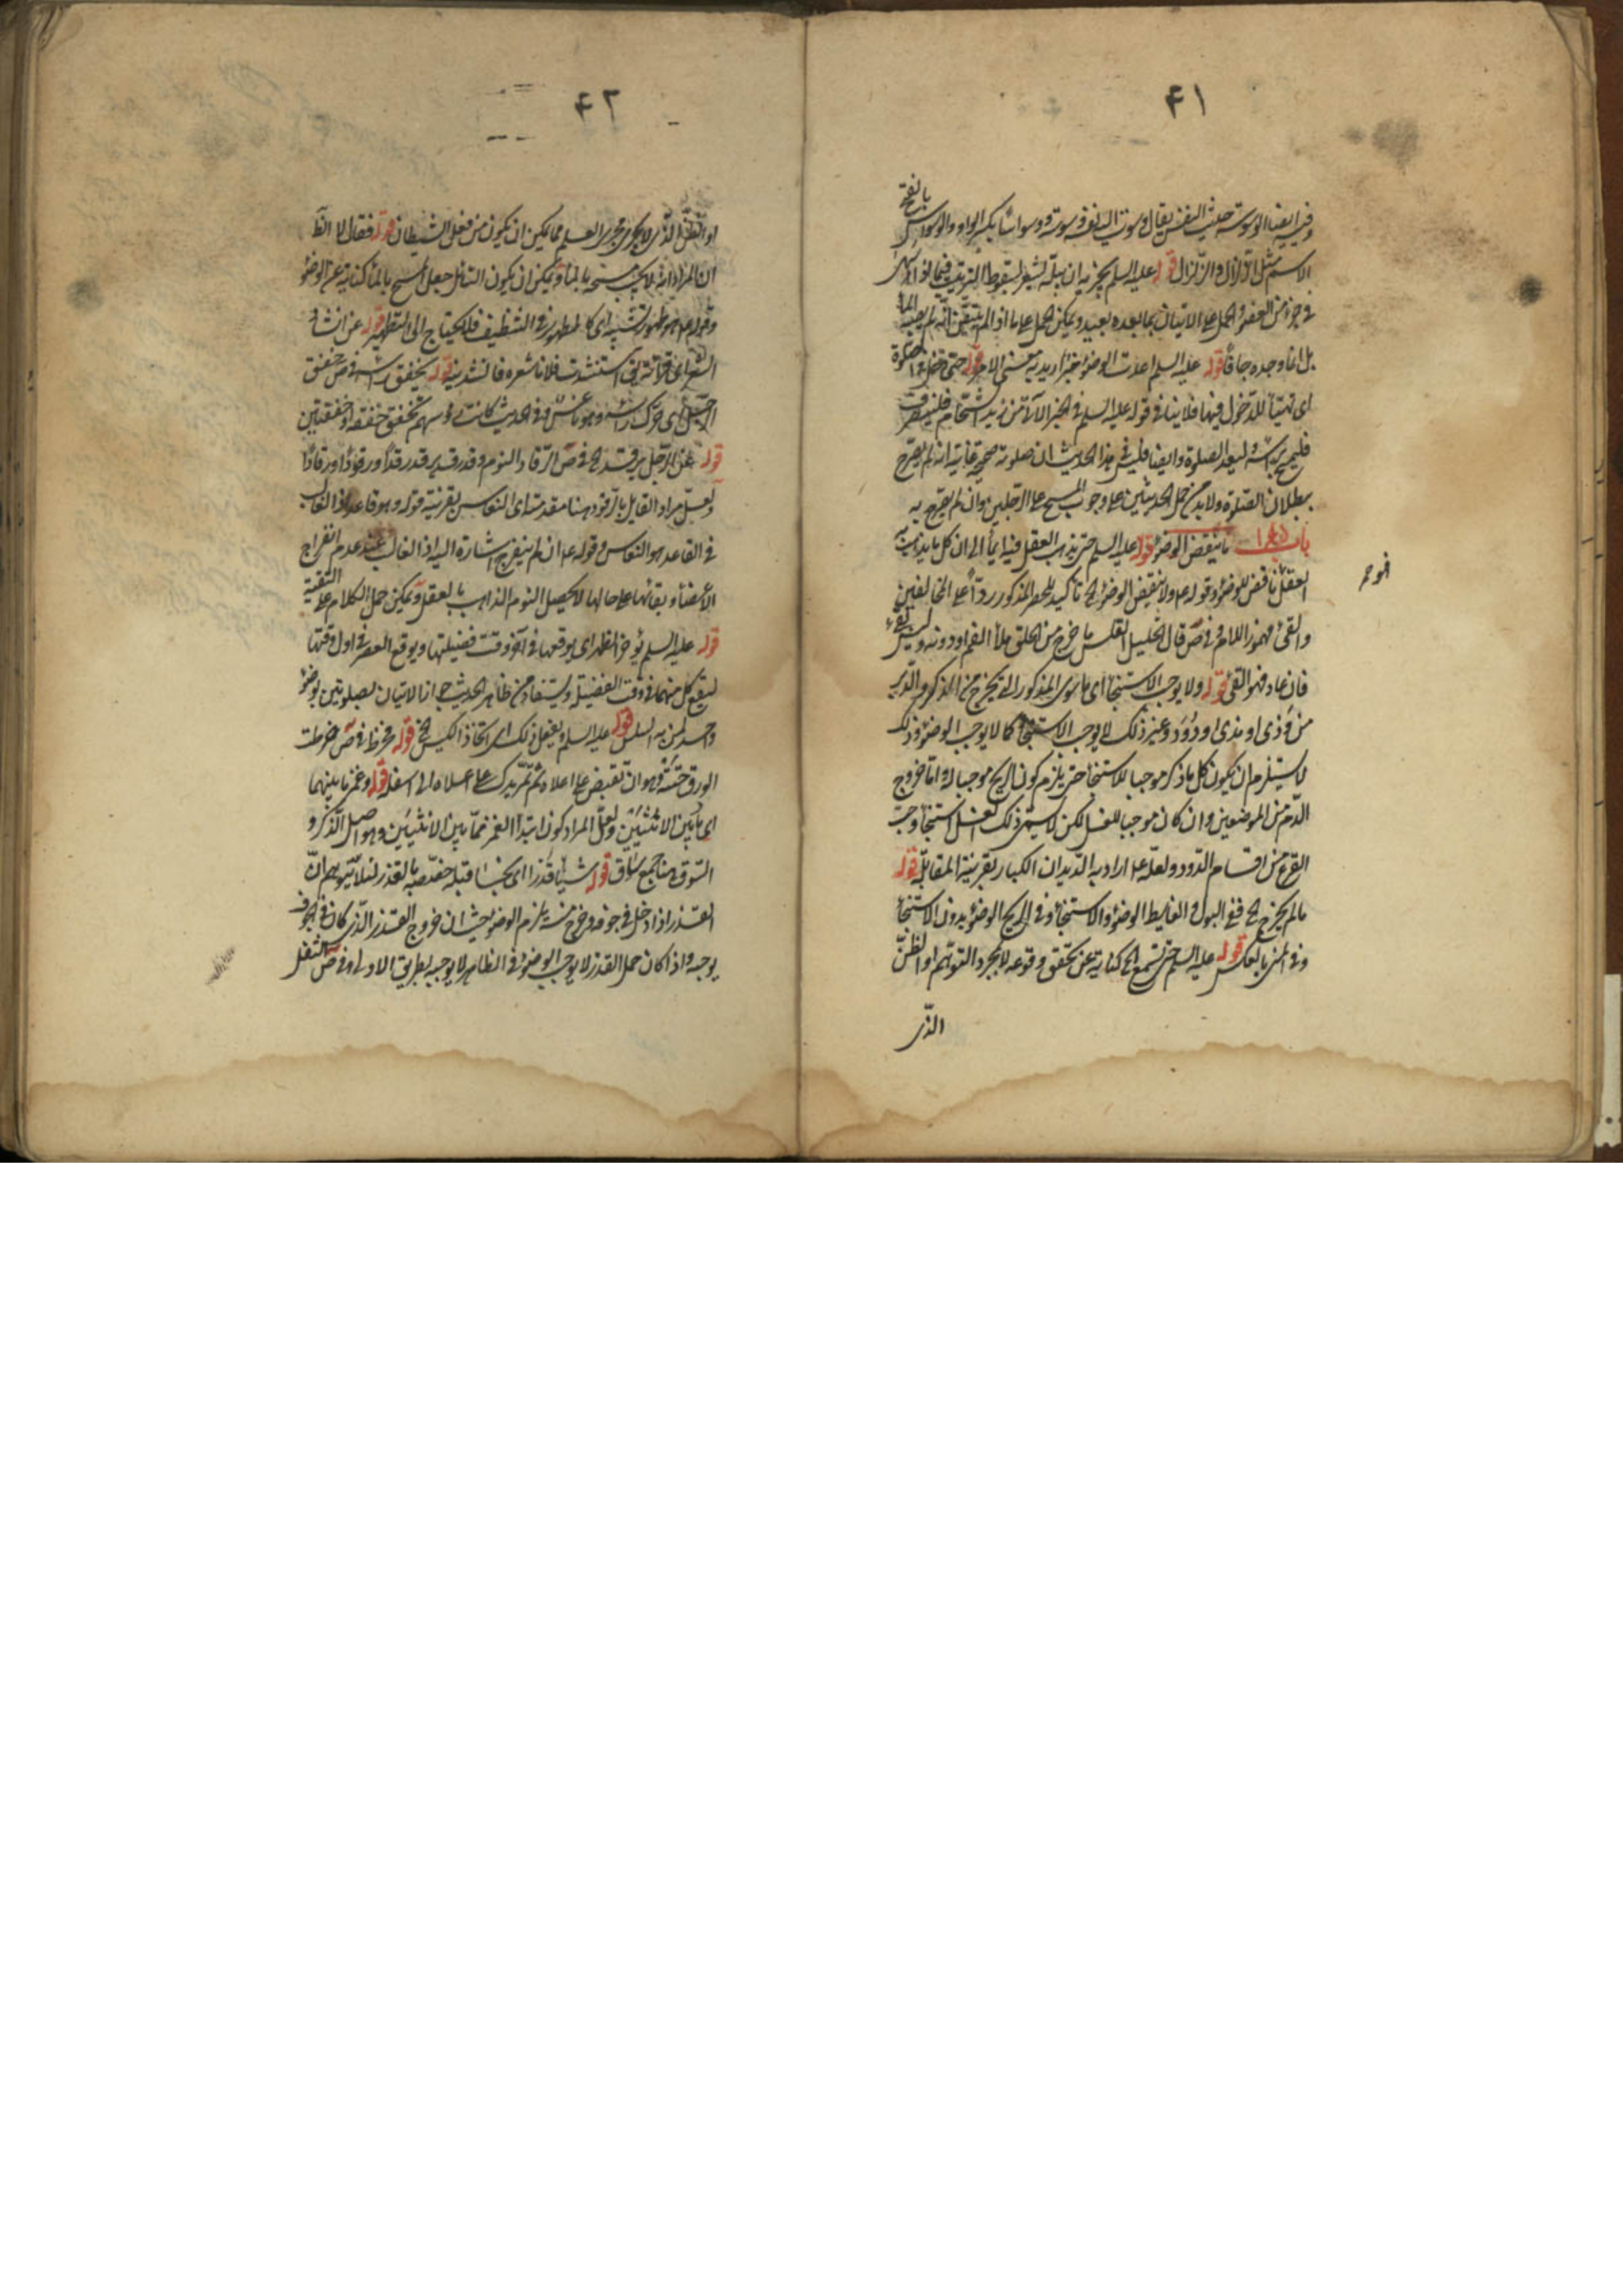 ۴۱
وفيه ايضا الوسوسة حديث النفس يقال وسوست اليه نفسه وسوسة ووسواسا بكسر الواو والوسواس بالفتح
الاسم مثل الزلزال والزلزال قوله عليه السلم يجزيه ان يبله يشعر بسقوط الترتيب فيما اذا
في جزء من العضو والحمل على الاتيان بما بعده بعيد ويمكن الحمل على ما اذا لم يتيقن انه لم يصبه الماء
بل انما وجده جافا قوله عليه السلم اعدت الوضوء خبر اريد به معنى الامر قوله حتى دخل في الصلوة
اى تهيئا للدخول فيها فلا ينافي قوله عليه السلم في الخبر الآتي من زيد استحكام فلينصرف
فليمسح براسه وليعد الصلوة وايضا فليس في هذا الحديث ان صلوته صحيحة غايته انه لم يصرح
ببطلان الصلوة ولا بد من حمل الحديثين على وجوب المسح على الرجلين وان لم يصرح به
باب ما ينقض الوضوء قوله عليه السلم حتى يذهب العقل فيه ايماء الى ان كل ما يذهب به
العقل ناقض للوضوء وقوله ع ولا ينقض الوضوء الخ تاكيد للحصر المذكور ردا على المخالفين
والقئ مهموز اللام وفي ص قال الخليل القلس ما خرج من الحلق ملأ الفم او دونه وليس بقئ
فان عاد فهو القئ قوله ولا يوجب الاستنجاء اى ما سوى المذكور الذي يخرج من الذكر والدبر
من وذى او مذى او دود وغير ذلك لا يوجب الاستنجاء كما لا يوجب الوضوء وذلك
لا يستلزم ان يكون كل ما ذكر موجبا للاستنجاء حتى يلزم كون الريح موجبا له واما خروج
الدم من الموضعين وان كان موجبا للغسل لكن لا يسمى ذلك الغسل استنجاء وحب
القرع من اقسام الدود ولعله ع اراد به الديدان الكبار بقرينة المقابلة قوله
ما لم يخرج الخ ففي البول والغايط الوضوء والاستنجاء وفي الريح الوضوء بدون الاستنجاء
وفي المني بالعكس قوله عليه السلم حتى تسمع الخ كناية عن تحقق وقوعه لا بمجرد التوهم او الظن
الذى
۴۲
او الظن الذى لا يجرى مجرى العلم مما يمكن ان يكون من فعل الشيطان قوله فقال لا الظ
ان المراد انه لا يجب مسحه بالماء ويمكن ان يكون السائل جعل المسح بالماء كناية عن الوضوء
وقوله ع هو طهور تشبيه اى كالمطهور في التنظيف فلا يحتاج الى التطهير قوله عن انشاد
الشعر اى قرائته يق استنشدت فلانا شعره فانشدنيه قوله يخفق راسه في ص خفق
الرجل اى حرك راسه وهو ناعس وفي الحديث كانت رؤسهم تخفق خفقة او خفقتين
قوله عن الرجل يرقد الخ في ص الرقاد النوم وقد رقد يرقد رقدا ورقودا ورقادا
ولعل مراد القايل بالرقود هنا مقدمته اى النعاس بقرينة قوله وهو قاعد اذ الغالب
في القاعد هو النعاس وقوله ع ان لم ينفرج اشارة اليه اذ الغالب عند عدم انفراج
الاعضاء وبقائها على حالها لا يحصل النوم الذاهب بالعقل ويمكن حمل الكلام على التقية
قوله عليه السلم يؤخر الظهر اى يوقعها في آخر وقت فضيلتها ويوقع العصر في اول وقتها
ليقع كل منهما في وقت الفضيلة ويستفاد من ظاهر الحديث جواز الاتيان بصلوتين بوضوء
واحد لمن به السلس قوله عليه السلم ويفعل ذلك اى اتخاذ الكيس الخ قوله فخرط في ص خرطت
الورق حتته وهو ان تقبض على اعلاه ثم تمر يدك على اعلاه الى اسفله قوله وغمز ما بينهما
اى ما بين الانثيين ولعل المراد كون ابتداء الغمز مما بين الانثيين وهو اصل الذكر و
السوق هنا جمع ساق قوله شيئا قذرا اى نجسا قبله خصصه بالقذر لئلا يتوهم ان
القذر اذا دخل في جوفه وخرج منه يلزم الوضوء حيث ان خروج القذر الذى كان في الجوف
يوجبه واذا كان حمل القذر لا يوجب الوضوء في الظاهر لا يوجبه بطريق الاولى وفي ص الثفل